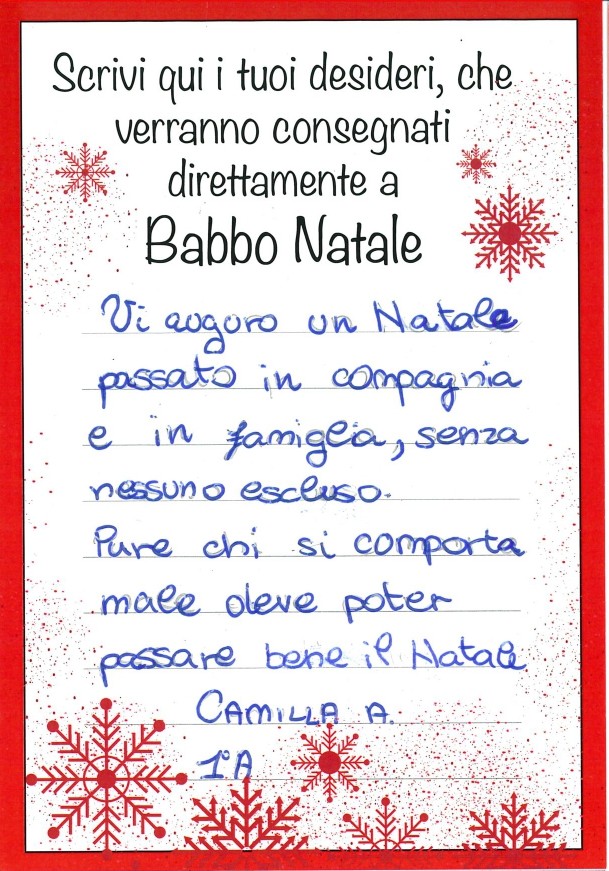 Scrivi qui i tuoi desideri, che
verranno consegnati
direttamente a
Babbo Natale
Vi auguro un Natale
passato in compagnia
e in famiglia, senza
nessuno escluso.
Pure chi si comporta
male deve poter
passare bene il Natale
CAMILLA A.
1°A